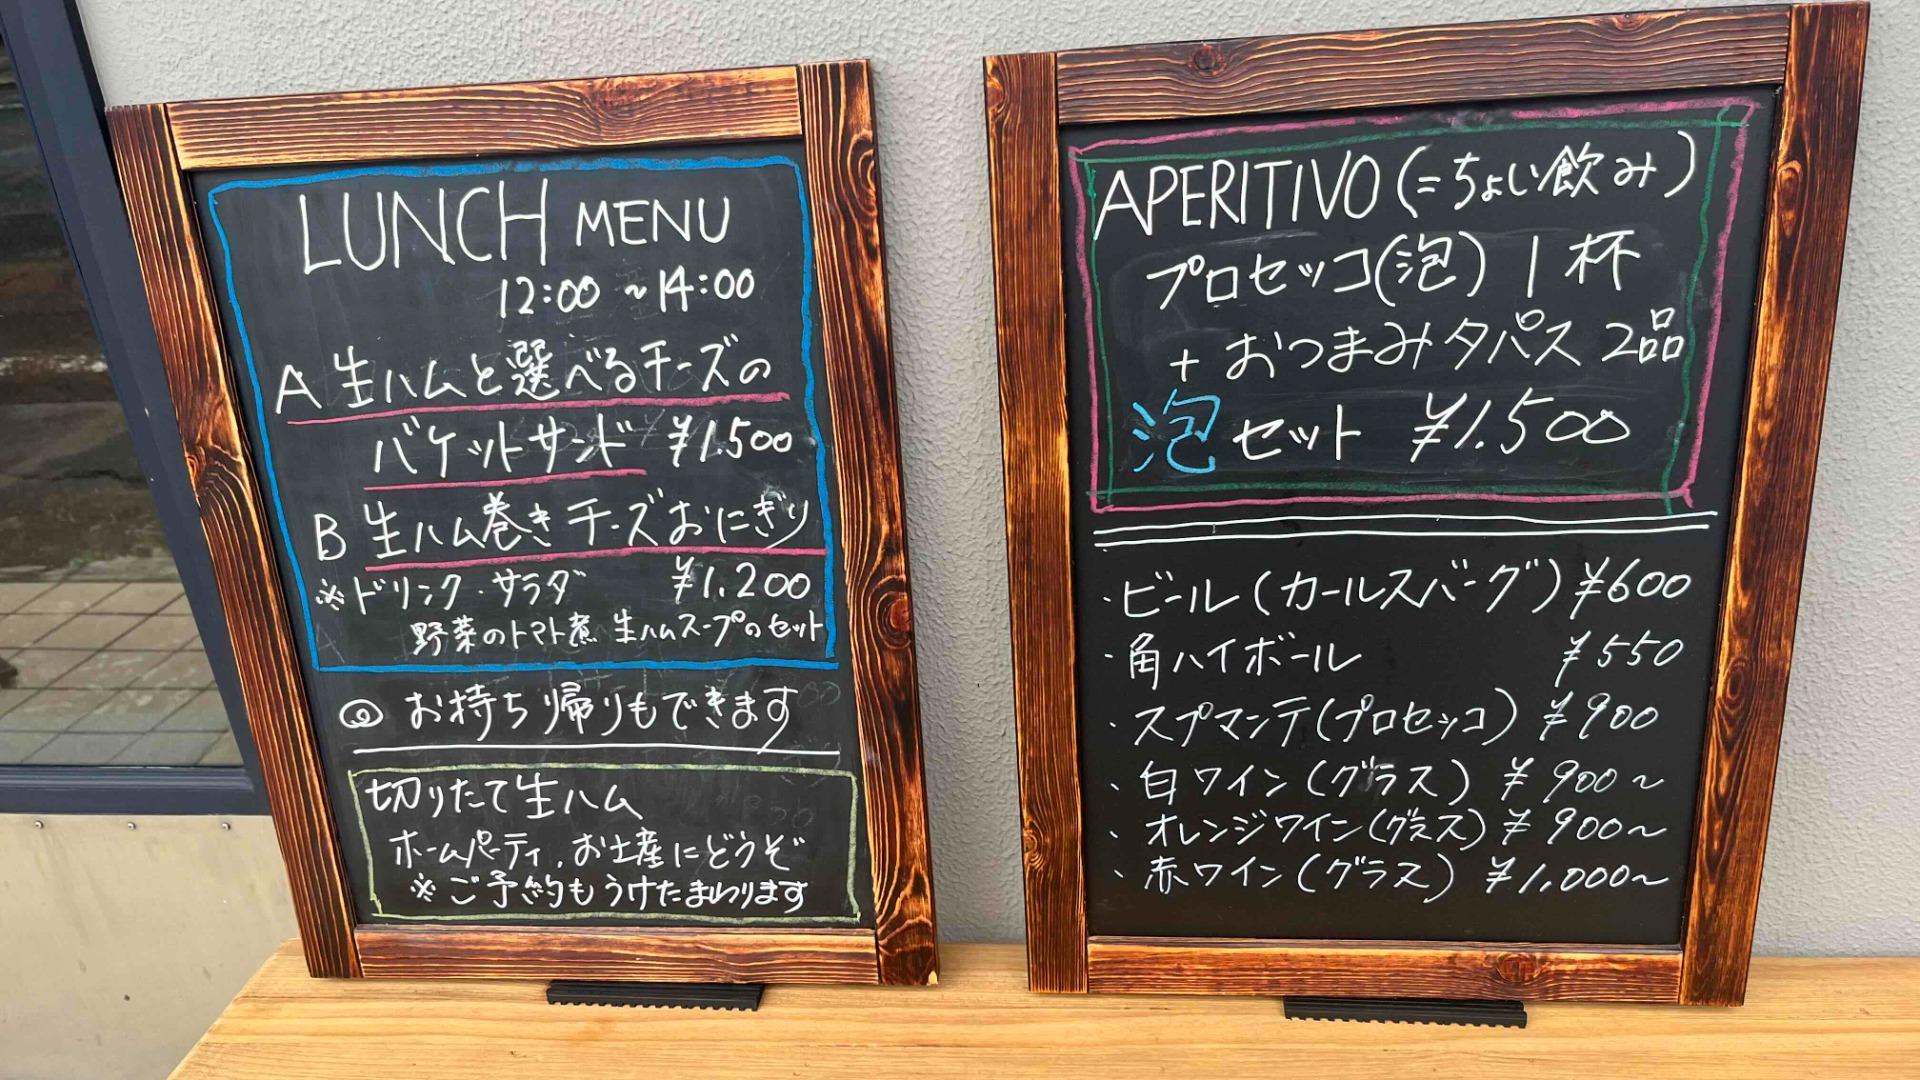 LUNCH MENU
12:00 ~14:00
A 生ハムと選べるチーズの
バケットサンド ¥1.500
B 生ハム巻きチーズおにぎり
¥1.200
※ドリンク・サラダ
野菜のトマト煮 生ハムスープのセット
◎ お持ち帰りもできます
切りたて生ハム
ホームパーティ、お土産にどうぞ
※ご予約もうけたまわります
APERITIVO (=ちょい飲み)
プロセッコ(泡) 1杯
+ おつまみタパス 2品
泡セット ¥1.500
・ビール(カールスバーグ) ¥600
・角ハイボール ¥550
・スプマンテ(プロセッコ) ¥900
・白ワイン(グラス) ¥900~
・オレンジワイン(グラス) ¥900~
・赤ワイン(グラス) ¥1,000~